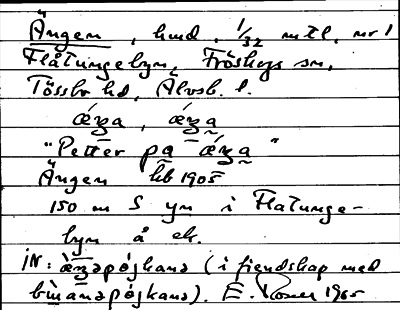 Ängen, hmd. 1/32 mtl. nr 1
Flåtungebyn, Fröskogs sn,
Tössbo hd, Älvsb. l.
ǽŋa, ǽŋa̰
"Petter pa ǽŋa̰"
Ängen hb 1905
150 m S yn i Flatunge-
byn å ek.
IN: æ̀ŋəpǻjkana (i fiendskap med
). E. Rosen 1965